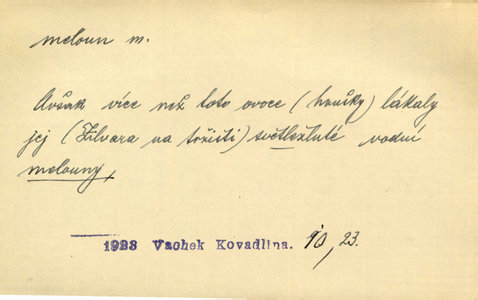 meloun m.
Avšak více než toto ovoce (hrušky) lákaly
jej (Žilvara na tržišti) světležluté vodní
melouny,
1923 Vachek Kovadlina. 10, 23.